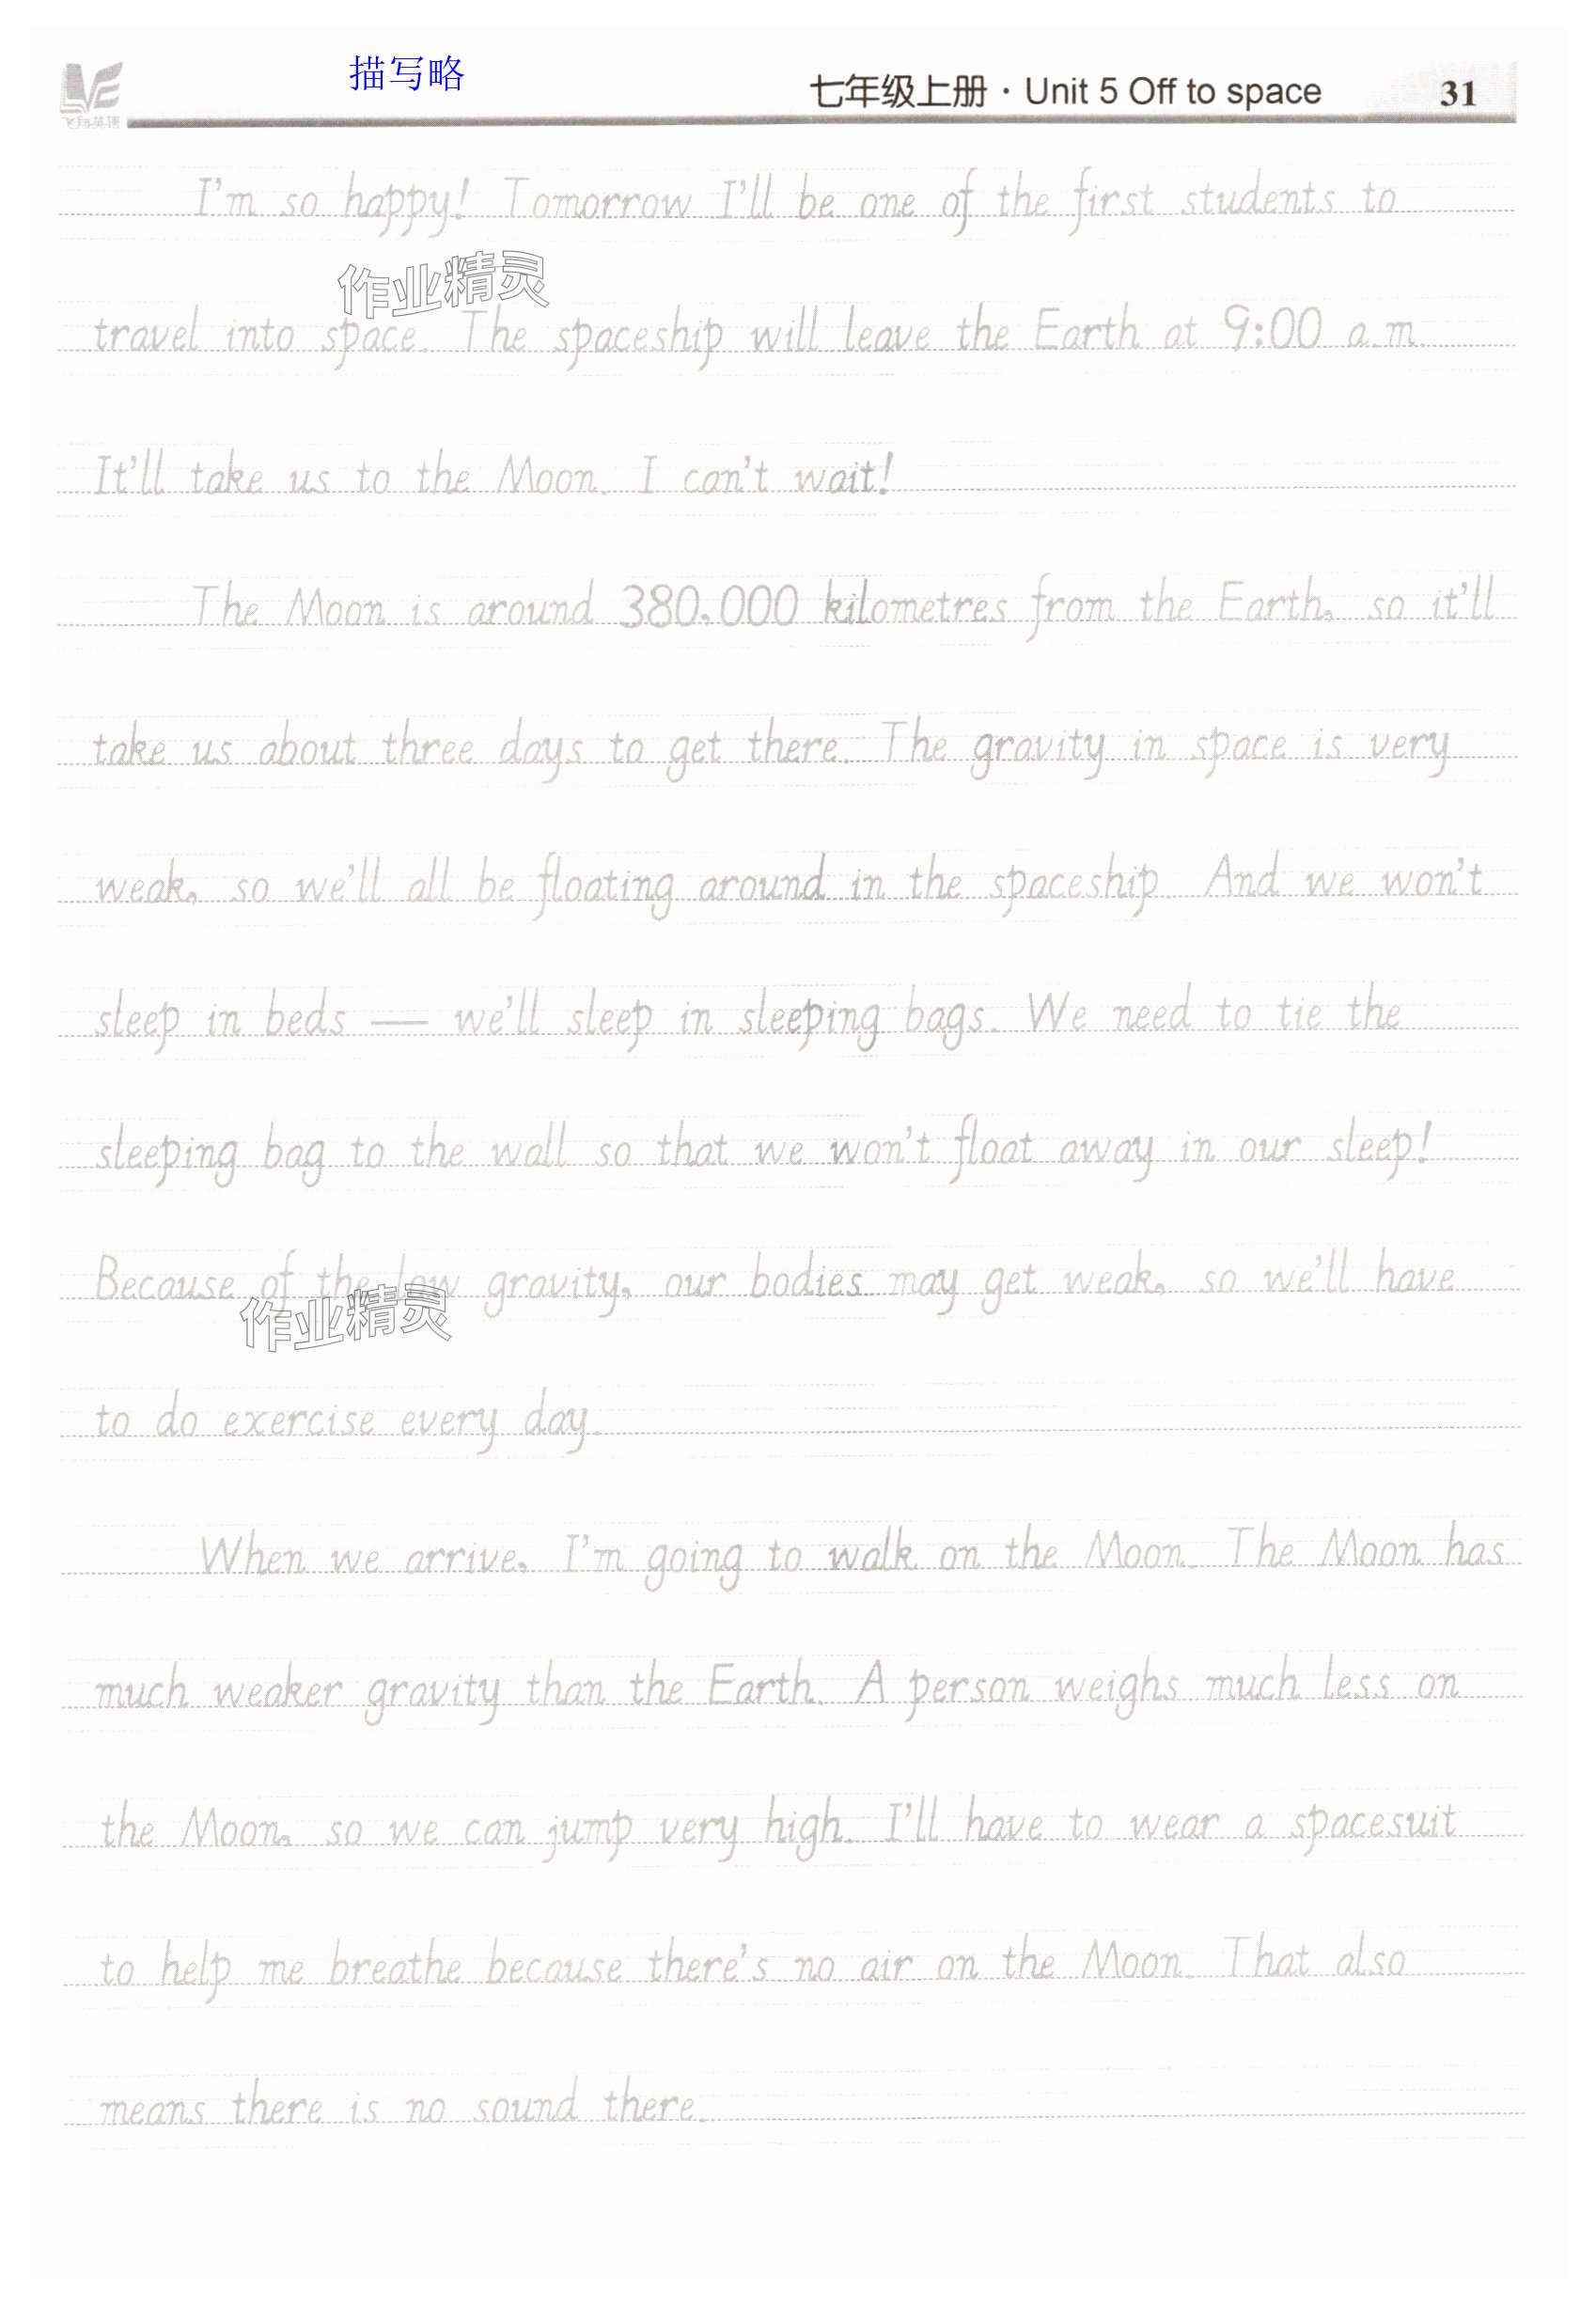 描写略
七年级上册·Unit 5 Off to space 31
I'm so happy! Tomorrow I'll be one of the first students to
作业精灵
travel into space. The spaceship will leave the Earth at 9:00 a.m.
It'll take us to the Moon. I can't wait!
The Moon is around 380,000 kilometres from the Earth, so it'll
take us about three days to get there. The gravity in space is very
weak, so we'll all be floating around in the spaceship. And we won't
sleep in beds — we'll sleep in sleeping bags. We need to tie the
sleeping bag to the wall so that we won't float away in our sleep!
Because of the low gravity, our bodies may get weak, so we'll have
作业精灵
to do exercise every day.
When we arrive, I'm going to walk on the Moon. The Moon has
much weaker gravity than the Earth. A person weighs much less on
the Moon, so we can jump very high. I'll have to wear a spacesuit
to help me breathe because there's no air on the Moon. That also
means there is no sound there.